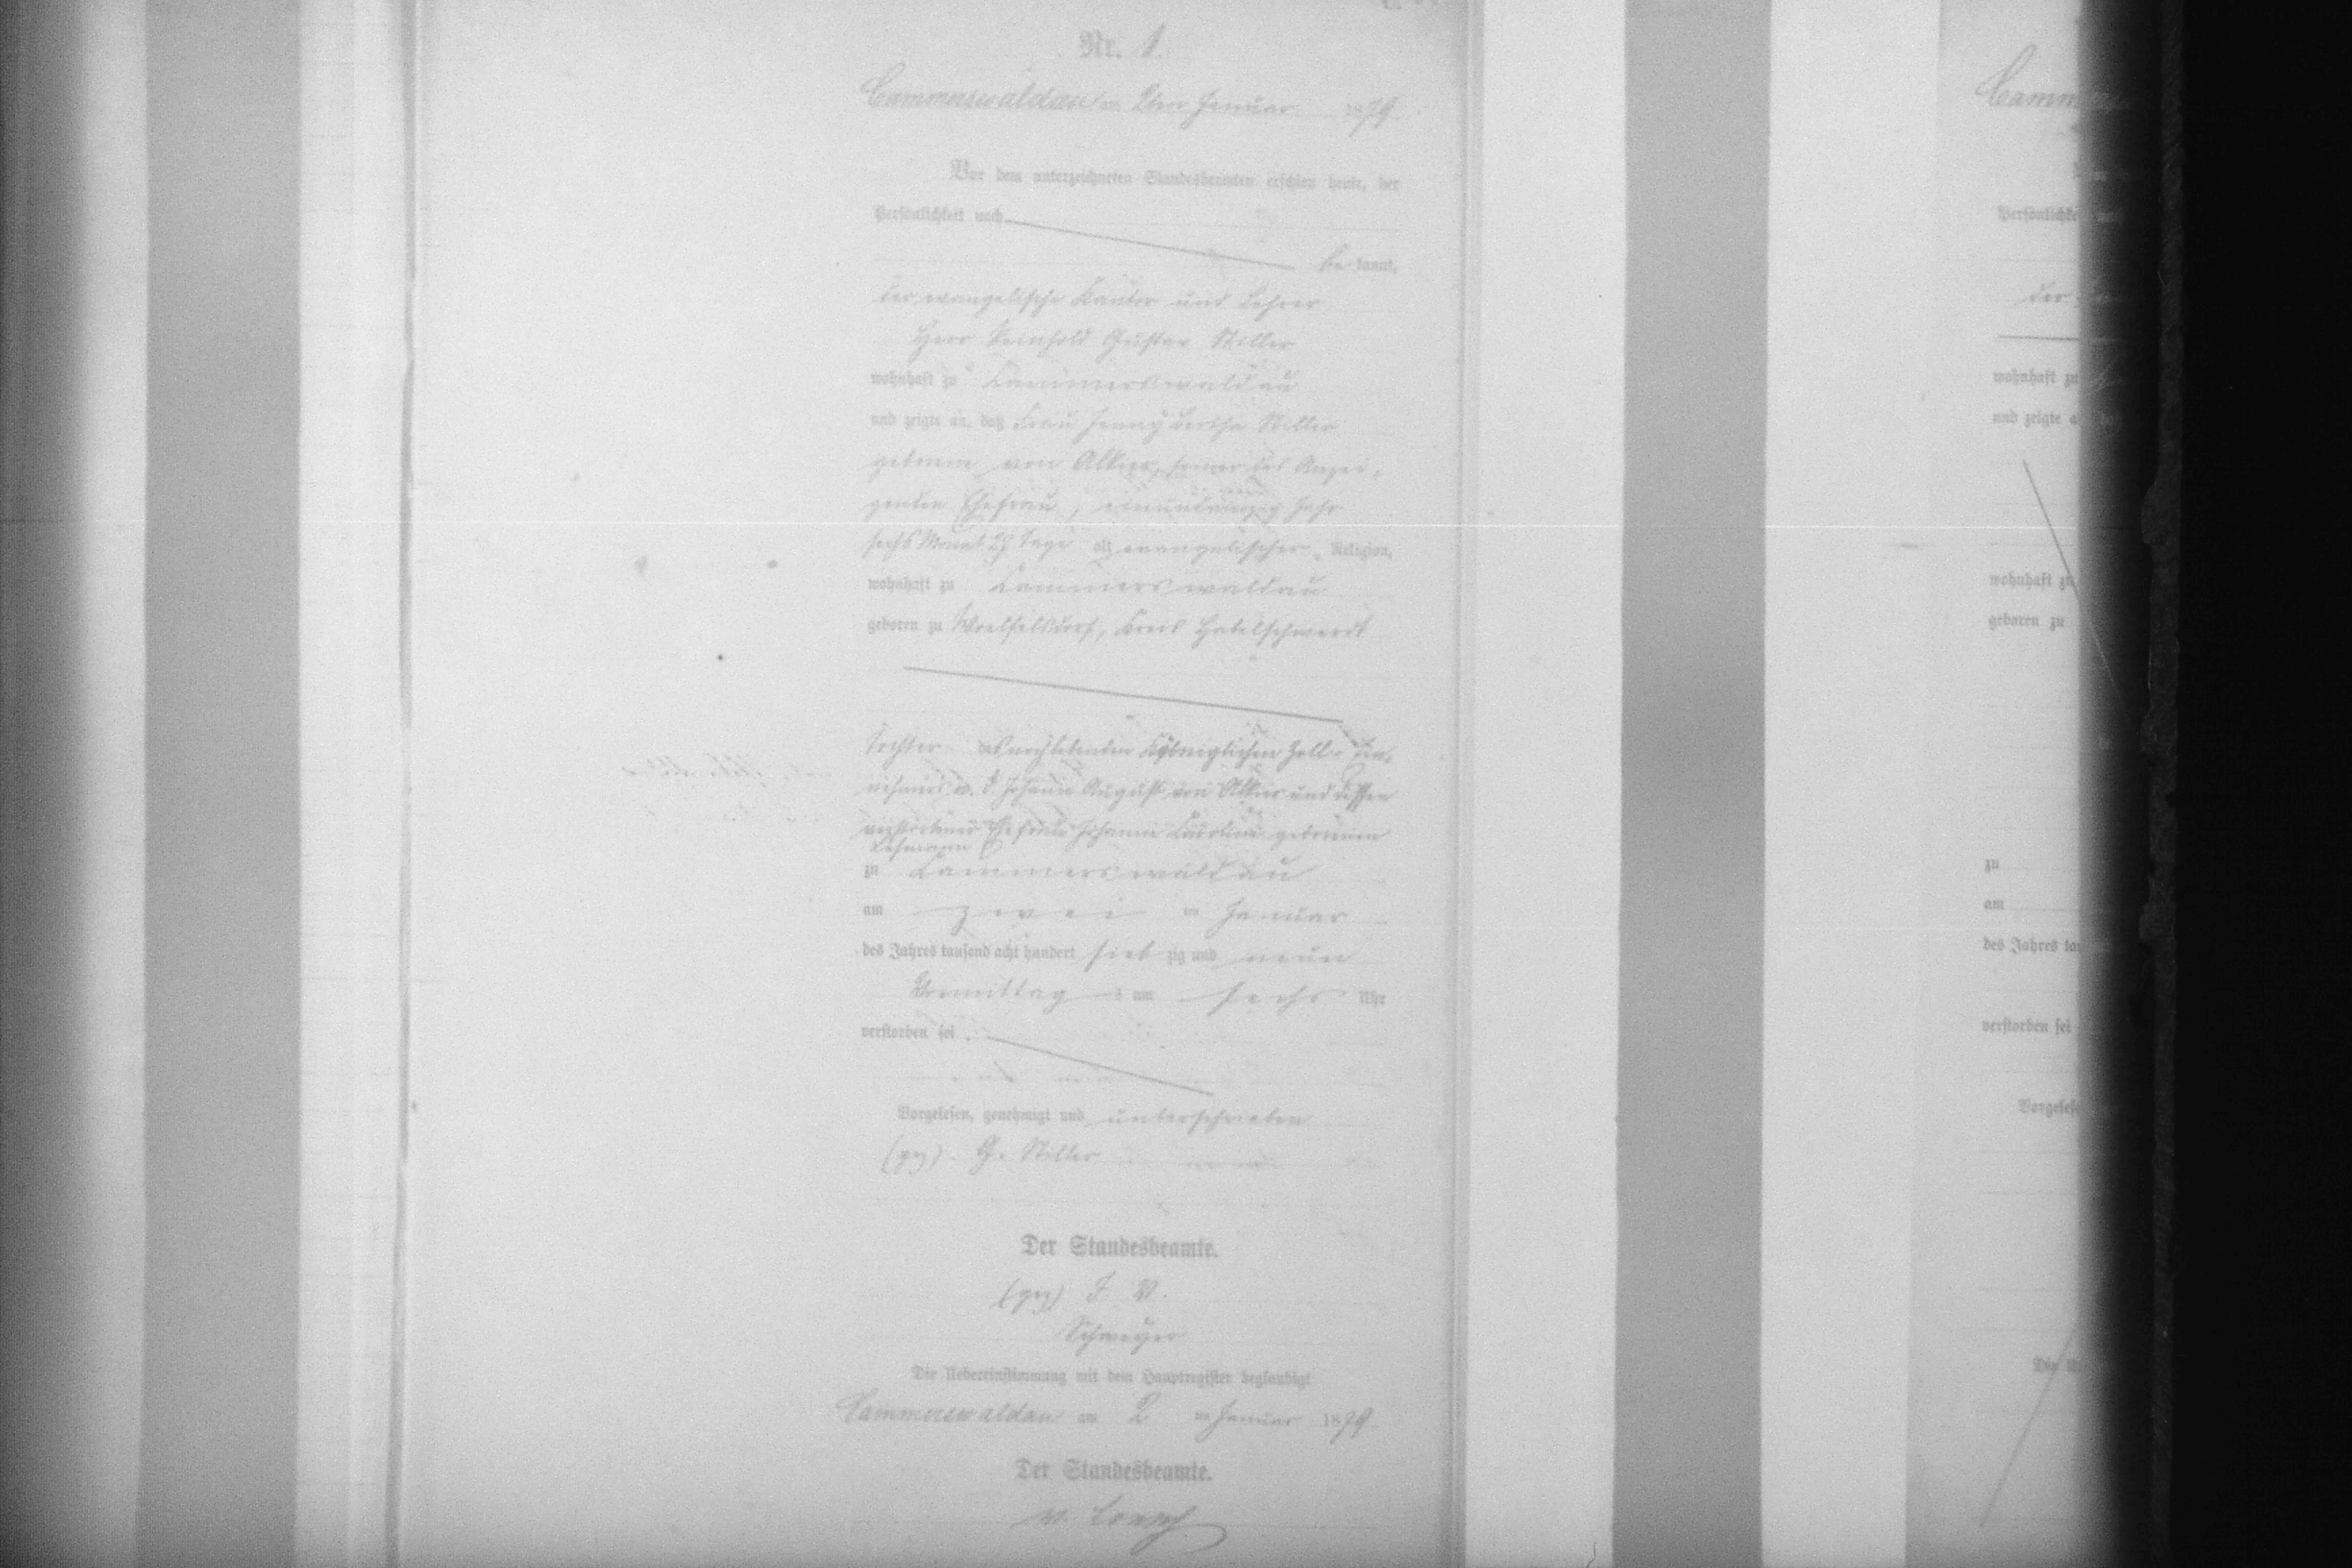 Nr. 1.
Cammerswaldau am 2ten Januar 1879.
Vor dem unterzeichneten Standesbeamten erschien heute, der
Persönlichkeit nach
be kannt,
der evangelische Kantor und Lehrer
Herr Reinhold Gustav Stiller
wohnhaft zu Cammerswaldau
und zeigte an, daß Frau Jenny Bertha Stiller
geborene von des Anzei-
genden Ehefrau, Jahr
sechs Monat 29 Tage alt evangelischer Religion,
wohnhaft zu Cammerswaldau
geboren zu Woelfelsdorf, Kreis Habelschwerdt
Tochter des noch lebenden Königlichen Zoll- Ein-
nehmers a. D. Johann August von und dessen
verstorbenen Ehefrau Johanne Caroline geborenen
Lehmann
zu Cammerswaldau
am zwei ten Januar
des Jahres tausend acht hundert sieb zig und neun
Vormittag s um sechs Uhr
verstorben sei.
Vorgelesen, genehmigt und unterschrieben
(gez). G. Stiller
Der Standesbeamte.
(gez) J. V.
Die Uebereinstimmung mit dem Hauptregister beglaubigt
Cammerswaldau am 2 ten Januar 1879
Der Standesbeamte.
v.
Camm
Persönlichke
der
wohnhaft zu
und zeigte a
wohnhaft zu
geboren zu
zu
am
des Jahres ta
verstorben sei
Vorgelese
Die